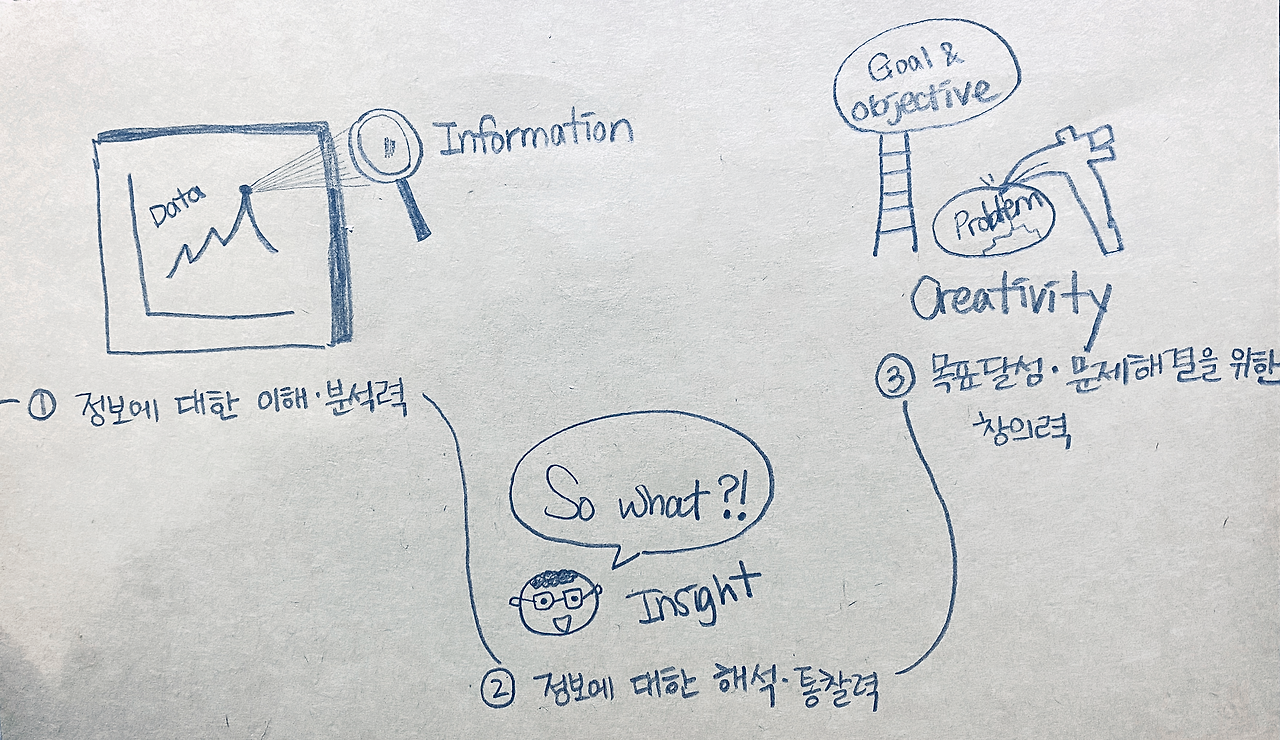 Data
Information
① 정보에 대한 이해·분석력
So what?!
Insight
② 정보에 대한 해석·통찰력
Goal &
objective
Problem
Creativity
③ 목표달성·문제해결을 위한
창의력